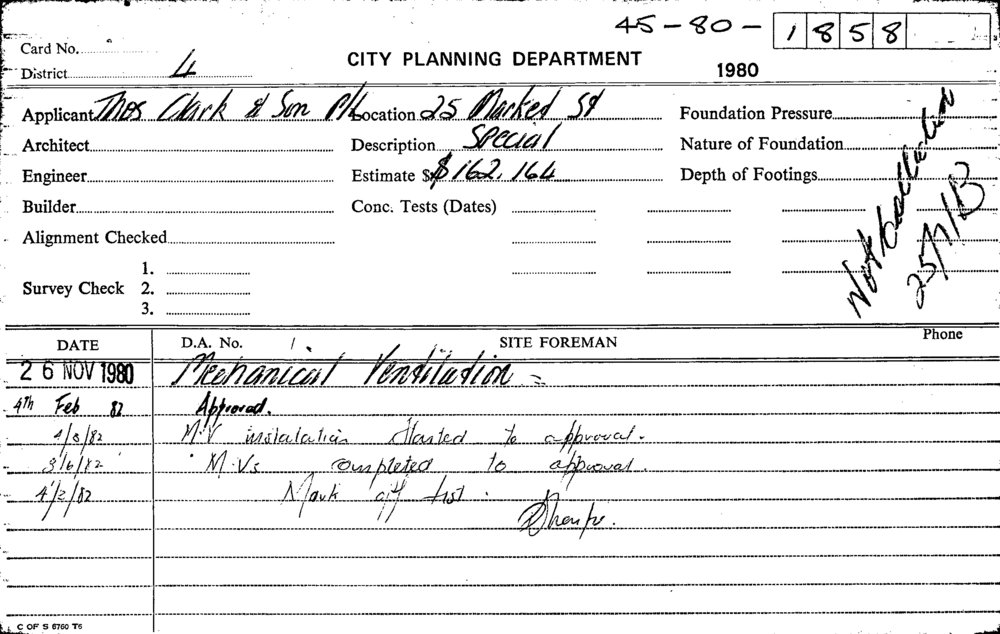 45-80- 1858
Card No.
CITY PLANNING DEPARTMENT
District 4 1980
Applicant Thos Clark & Son P/L Location 25 Market St Foundation Pressure
Architect Description Special Nature of Foundation
Engineer Estimate $ $162,164 Depth of Footings
Builder Conc. Tests (Dates)
Alignment Checked
1.
Survey Check 2.
3.
Not
DATE D.A. No. 1. SITE FOREMAN Phone
26 NOV 1980 Mechanical Ventilation =
4th Feb 82 Approved.
4/3/82 M.V instalation started to approval.
3/6/82 M.Vs completed to approval.
4/2/82 Mark off list.
C OF S 6760 T6